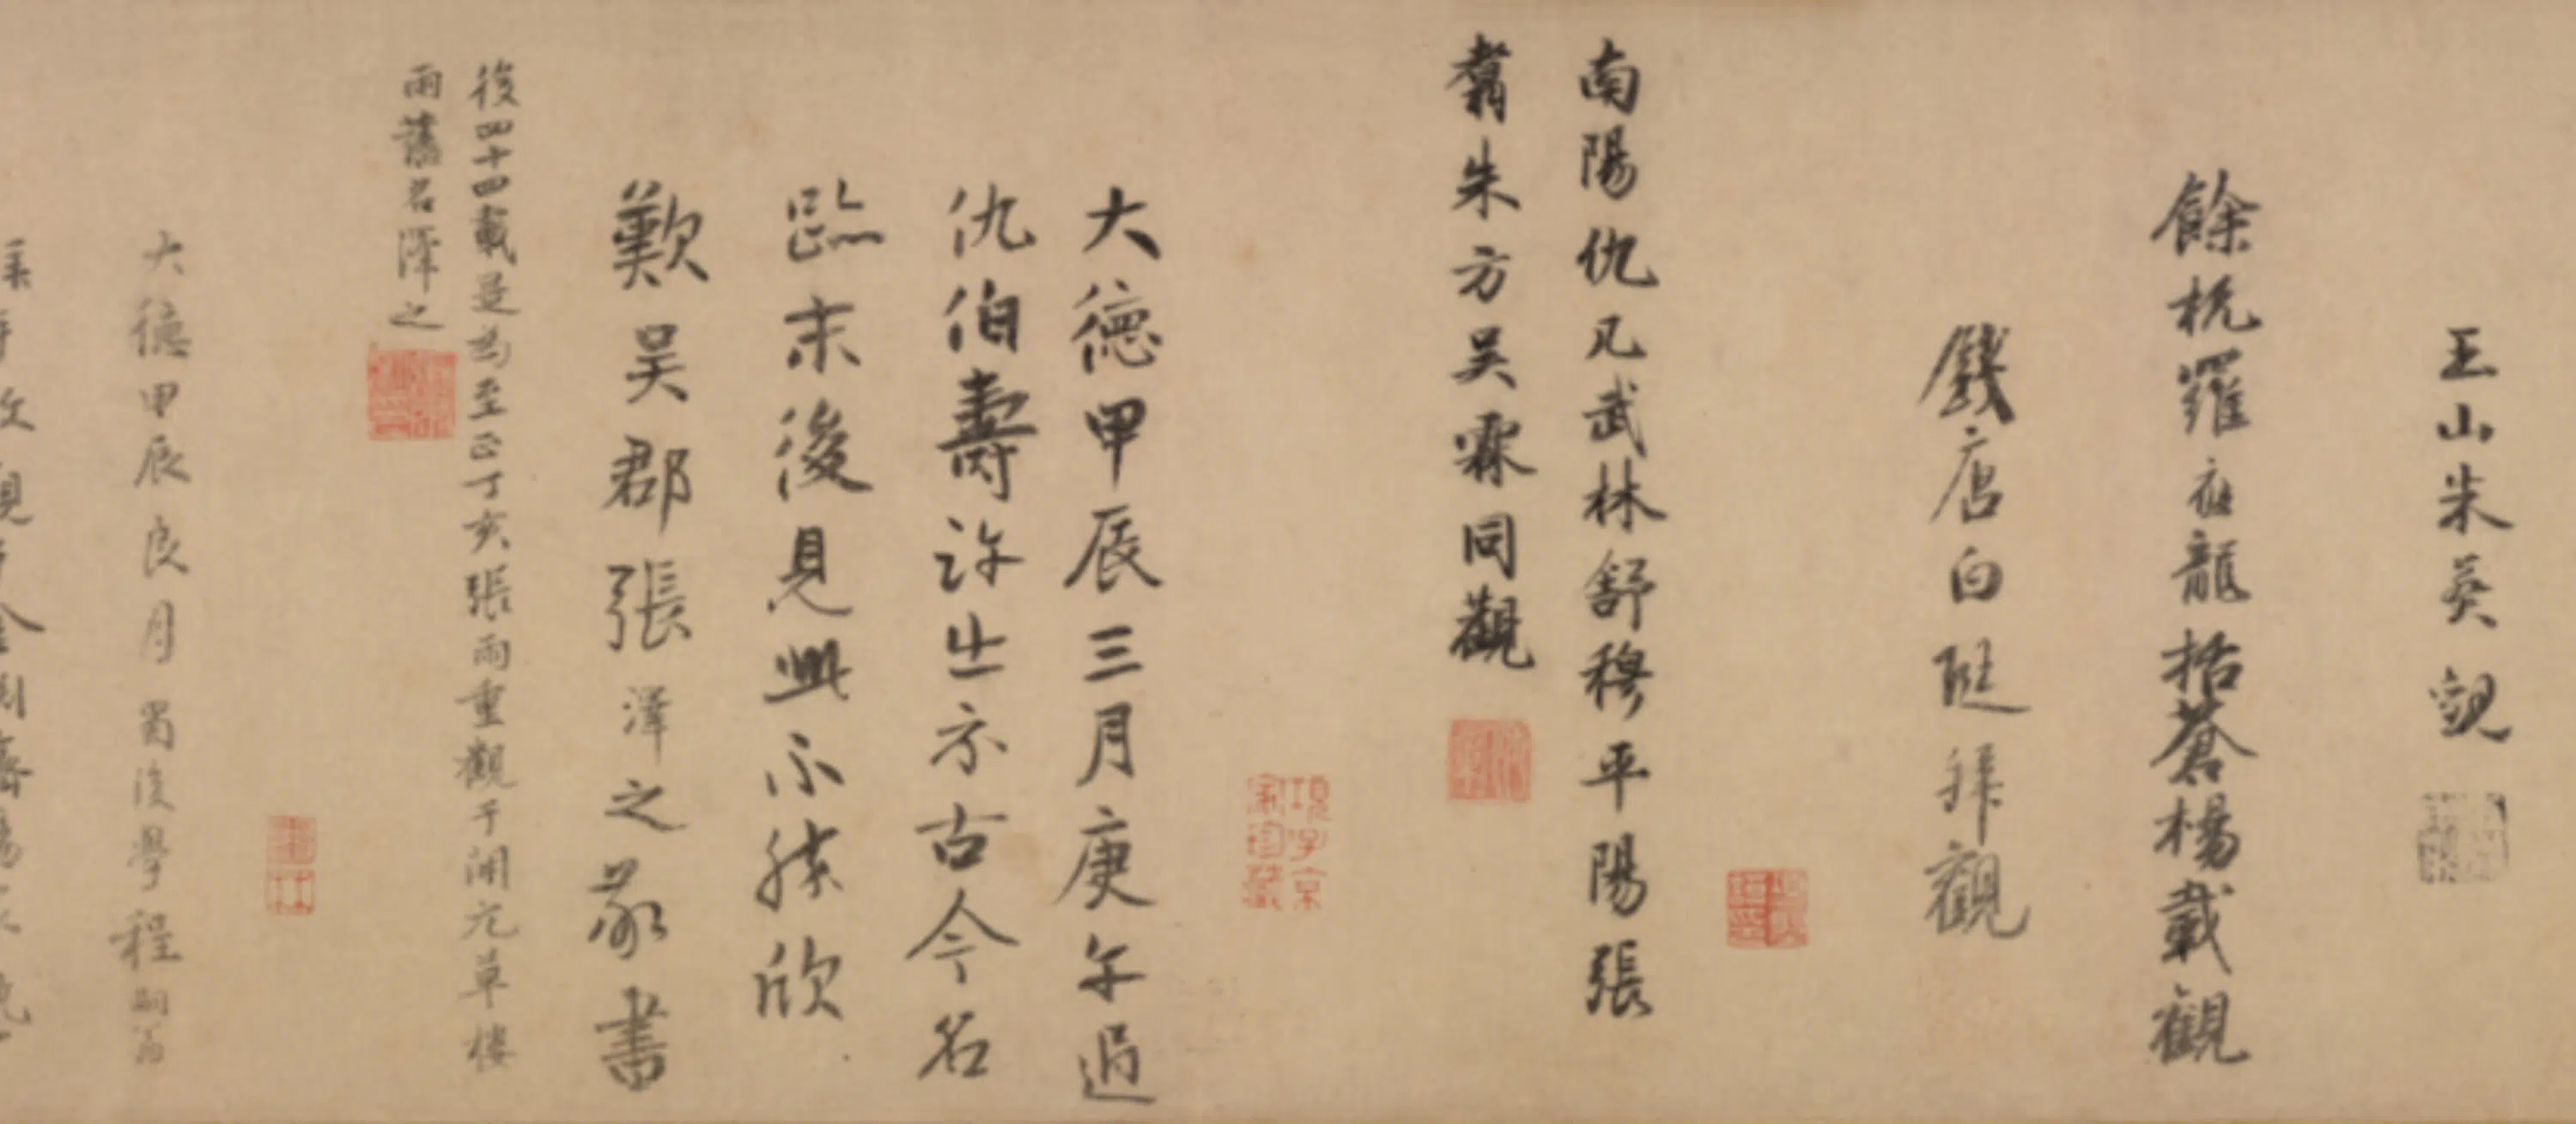 玉山朱葵觀
餘杭羅應龍括蒼楊載觀
錢唐白珽拜觀
南陽仇几武林舒穆平陽張
翥朱方吴霖同觀
項子京家珍藏
大德甲辰三月庚午過
仇伯壽許出示古今名
蹟末後見此不勝欣
歎吴郡張澤之敬書
後四十四載是為至正丁亥張雨重觀于開元草樓
雨舊名澤之
大德甲辰良月蜀後學程嗣翁